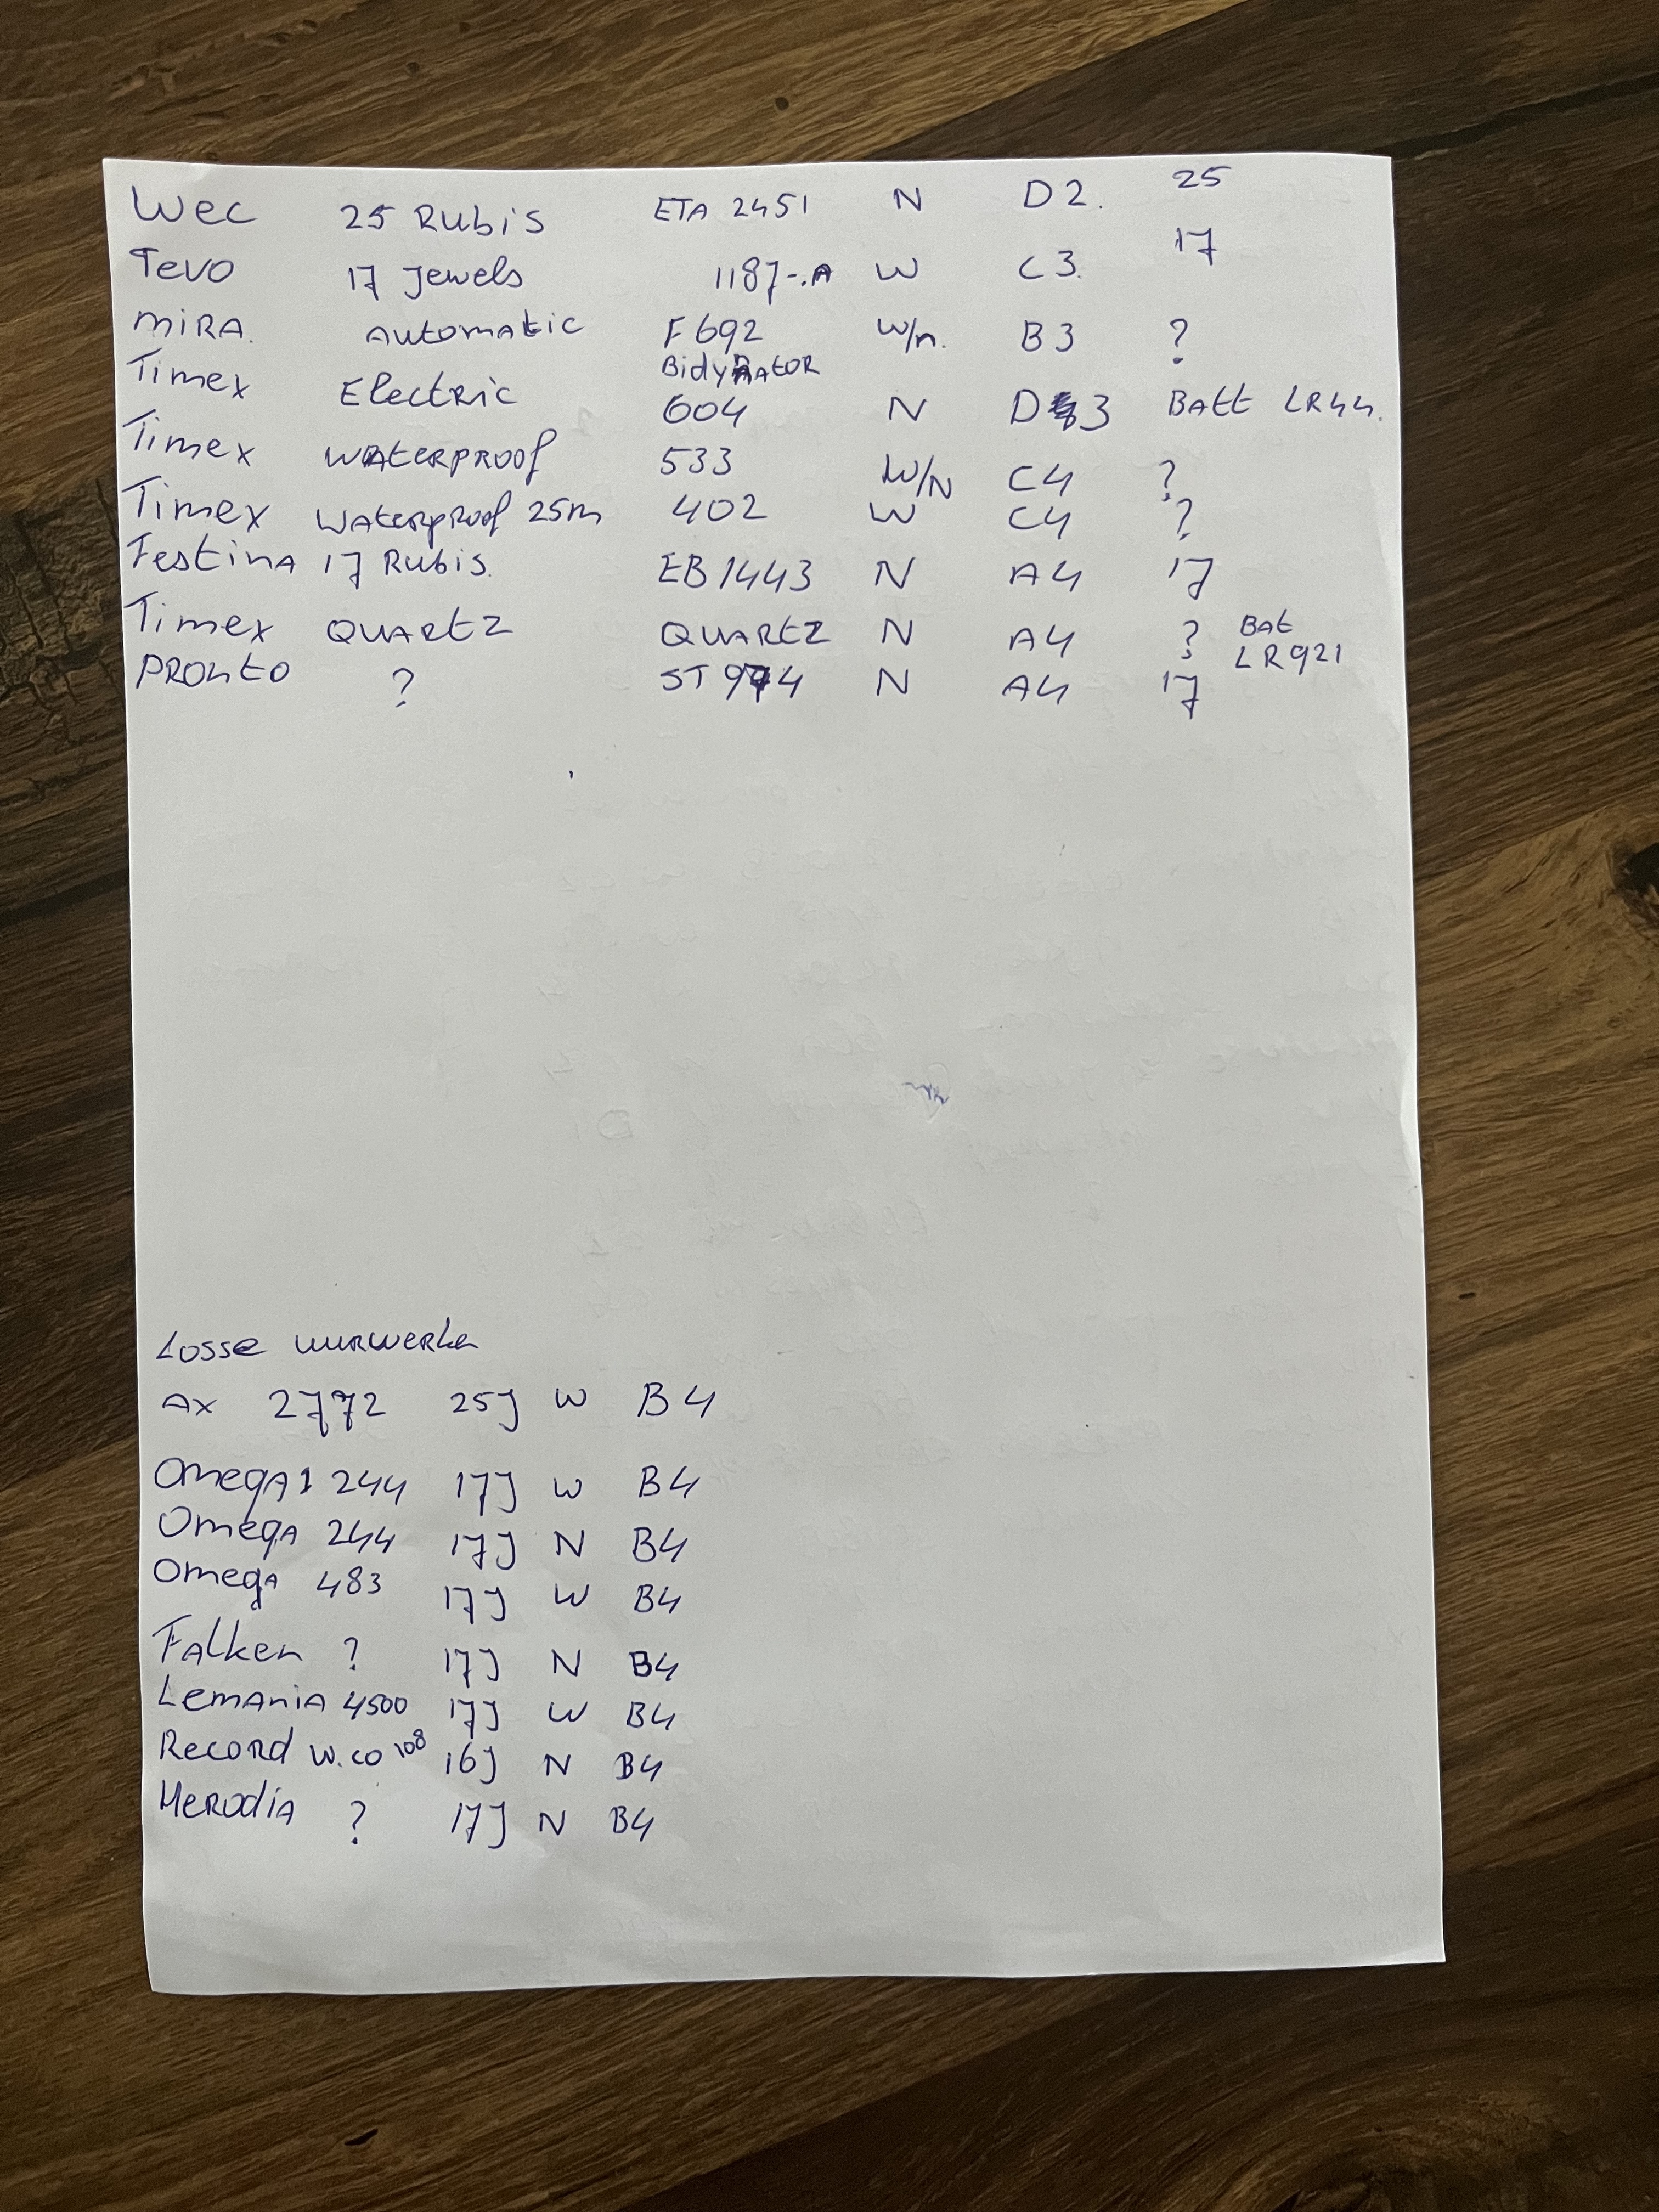 Wec 25 Rubis ETA 2451 N D2. 25
Tevo 17 Jewels 1187-.A W C3. 17
MIRA. Automatic F692 W/n. B3 ?
Bidynator
Timex Electric 604 N D3 Batt LR44.
Timex Waterproof 533 W/N C4 ?
Timex Waterproof 25m 402 W C4 ?
Festina 17 Rubis. EB 1443 N A4 17
Timex Quartz Quartz N A4 ? Bat LR921
Pronto ? ST 974 N A4 17
Losse uurwerken
Ax 2772 25J W B4
Omega 1 244 17J W B4
Omega 244 17J N B4
Omega 483 17J W B4
Falken ? 17J N B4
Lemania 4500 17J W B4
Record W.co 108 16J N B4
Herodia ? 17J N B4